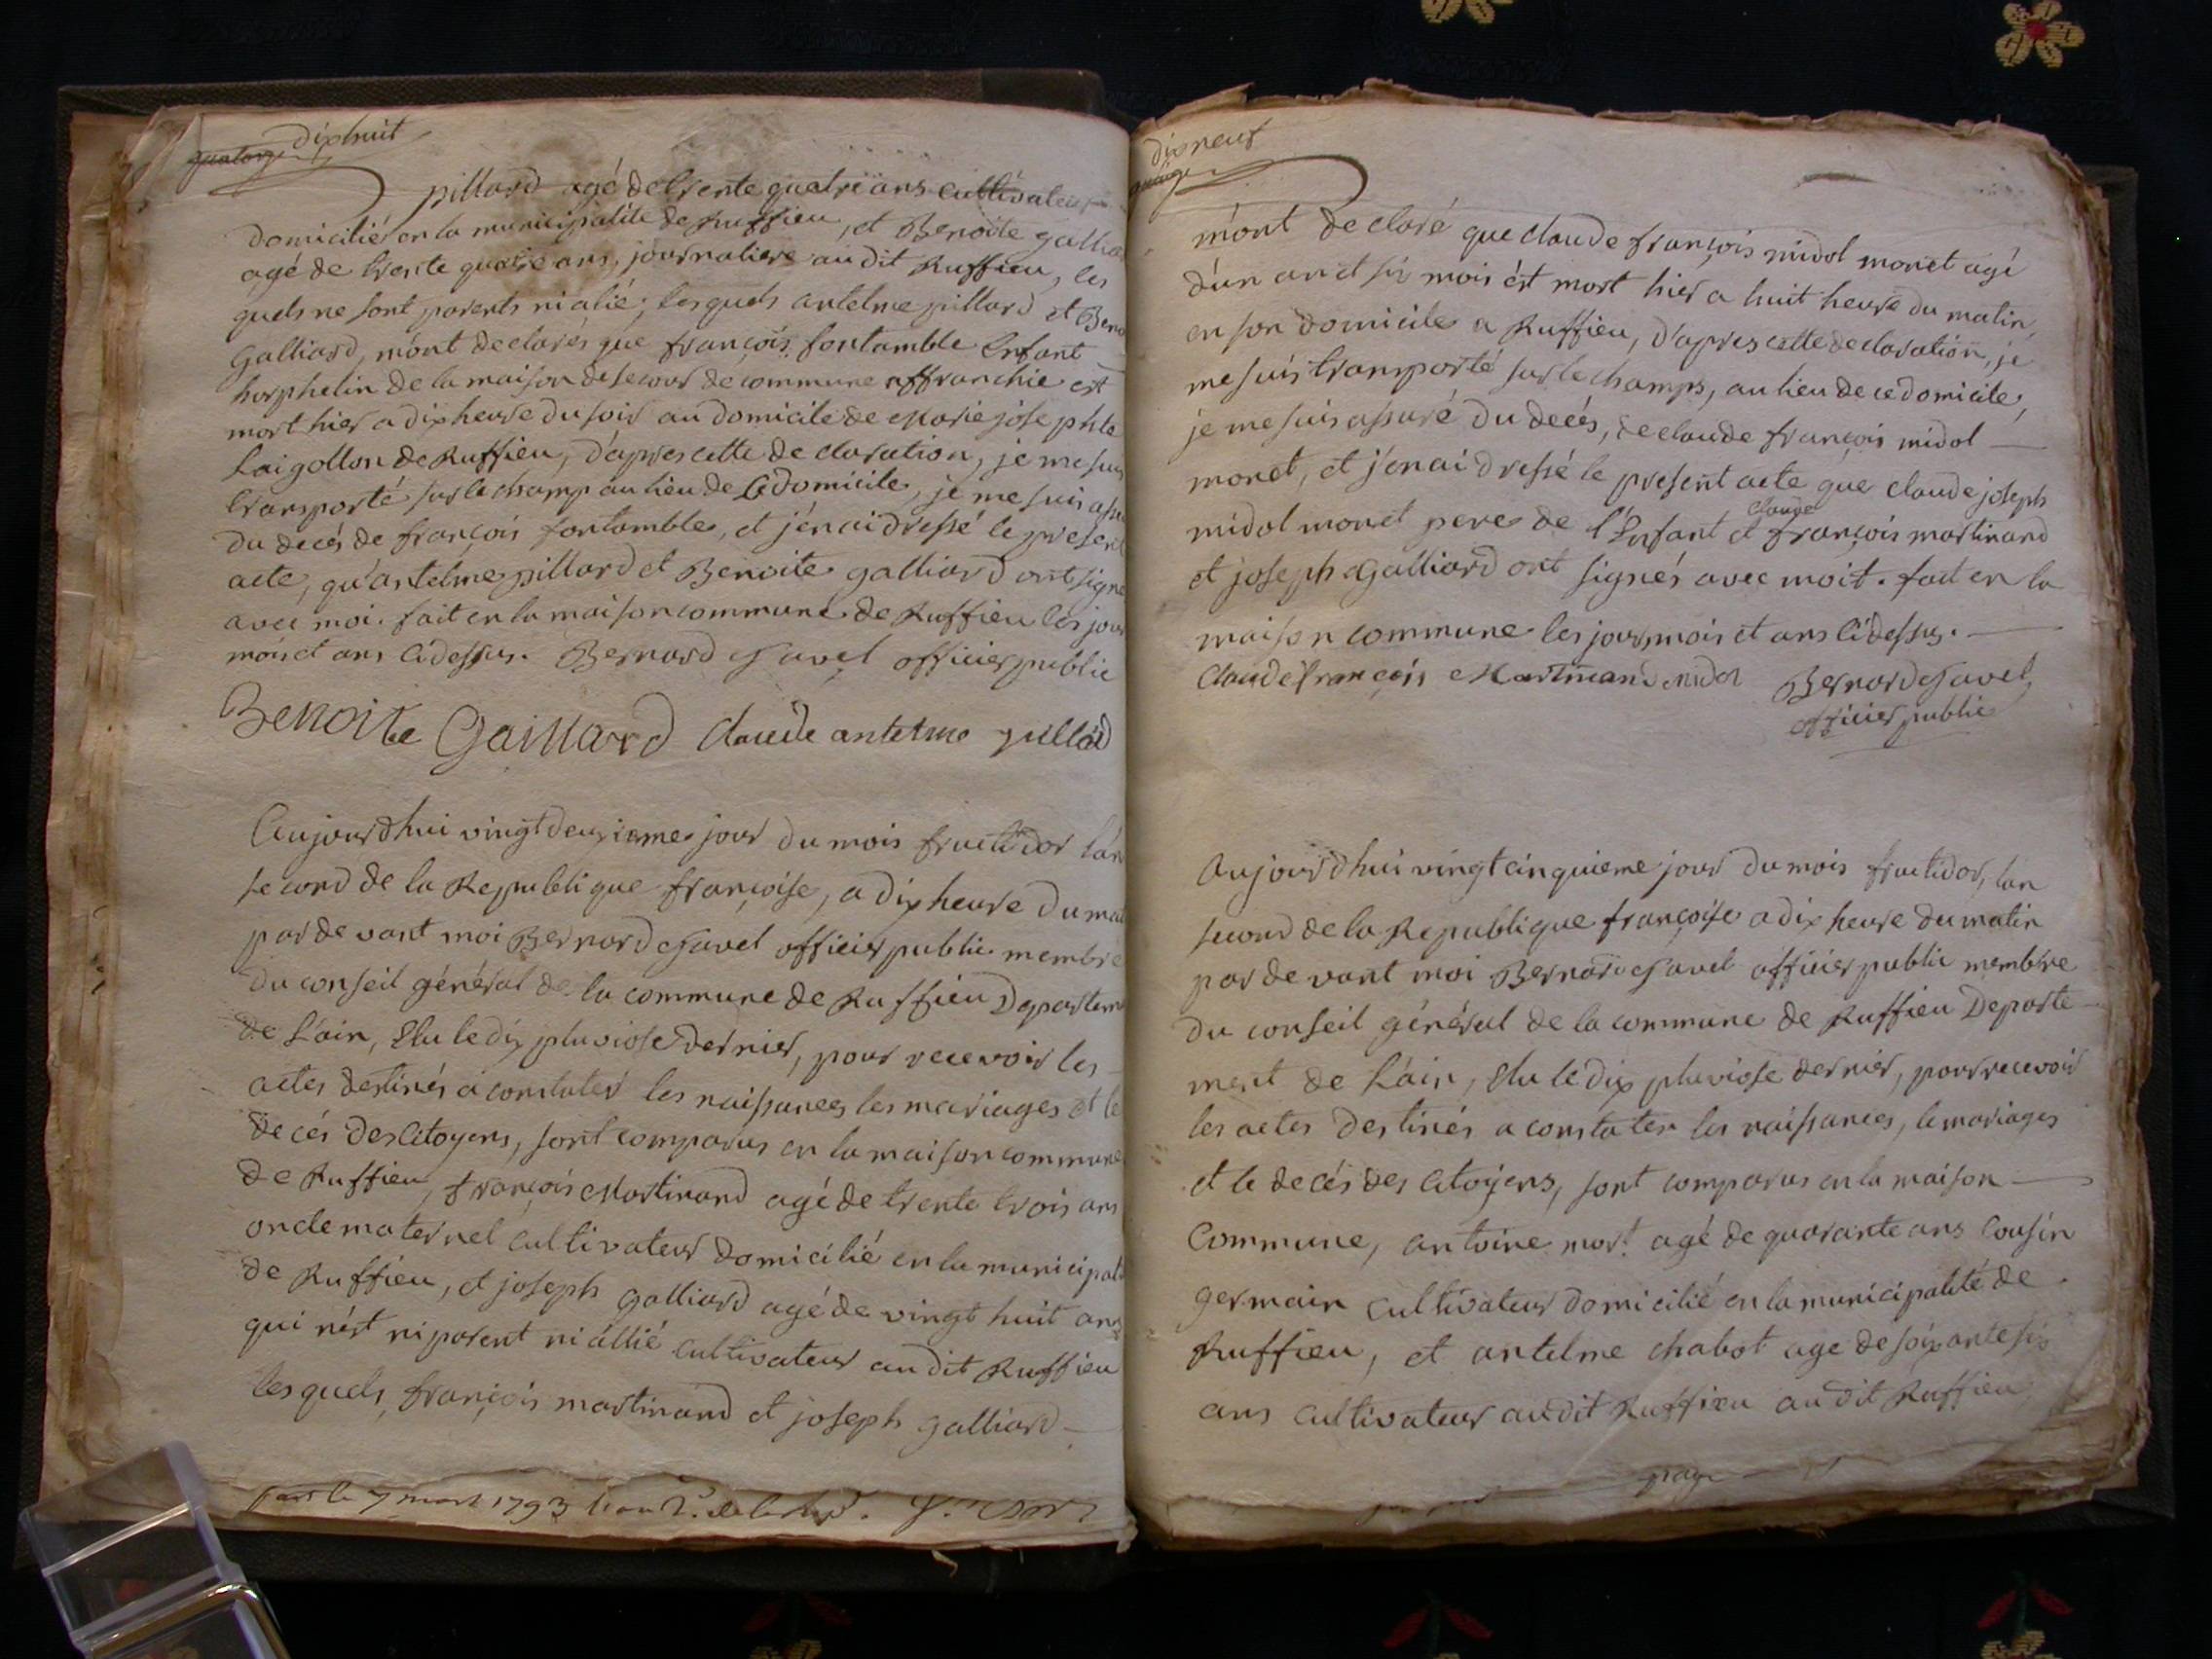 dixhuit
quatorze
pillard agé de trente quatre ans cultivateur
domicilié en la municipalité de Ruffieu, et Benoite gallia
agé de trente quatre ans, journaliere audit Ruffieu, les
quels ne sont parents ni alié, lesquels antelme pillard et Beno
Galliard, m'ont declarés que françois fontamble Enfant
horphelin de la maison de secour de commune affranchie est
mort hier a dix heure du soir au domicile de Marie josephte
Laigollon de Ruffieu, d'apres cette declaration, je me suis
transporté sur le champ au lieu de ce domicile, je me suis assu
du decés de françois fontamble, et j'en ai dressé le present
acte, qu'antelme pillard et Benoite galliard ont signe
avec moi. fait en la maison commune de Ruffieu les jour
mois et ans cidessus. Bernard Javel officier public
Benoite Gaillard Claude antelme pillard
Aujourdhui vingt deuxieme jour du mois fructidor l'an
second de la Republique françoise, a dix heure du mat
par devant moi Bernard Javel officier public membre
du conseil général de la commune de Ruffieu Departem
de L'ain, Elu le dix pluviose dernier, pour recevoir les
actes destinés a constater les naissances les mariages et le
decés des Citoyens, sont comparus en la maison commune
de Ruffieu, françois Martinand agé de trente trois ans
oncle maternel cultivateur domicilié en la municipali
de Ruffieu, et joseph Galliard agé de vingt huit ans
qui n'est ni parent ni allié cultivateur audit Ruffieu
lesquels, françois martinand et joseph galliard
le 7 mars 1793 l'an 2. de la
dix neuf
m'ont declaré que claude françois midol monet agé
d'un an et six mois est mort hier a huit heure du matin,
en son domicile a Ruffieu, d'apres cette declaration, je
me suis transporté sur le champs, au lieu de ce domicile,
je me suis assuré du decés, de claude françois midol
monet, et j'en ai dressé le present acte que claude joseph
midol monet pere de l'Enfant et claude françois martinand
et joseph Galliard ont signés avec moit. fait en la
maison commune les jour, mois et ans cidessus.
Claude françois Martinand midol Bernard Javel
officier public
Aujourdhui vingt cinquieme jour du mois fructidor, lan
second de la Republique françoise a dix heure du matin
par devant moi Bernard Javel officier public membre
du conseil général de la commune de Ruffieu Departe
ment de L'ain, Elu le dix pluviose dernier, pour recevoir
les actes destinés a constater les naissances, le mariages
et le decés des Citoyens, sont comparus en la maison
Commune, antoine mort agé de quarante ans Cousin
germain cultivateur domicilié en la municipalité de
Ruffieu, et antelme chabot age de soixante six
ans cultivateur audit Ruffieu audit Ruffieu
page